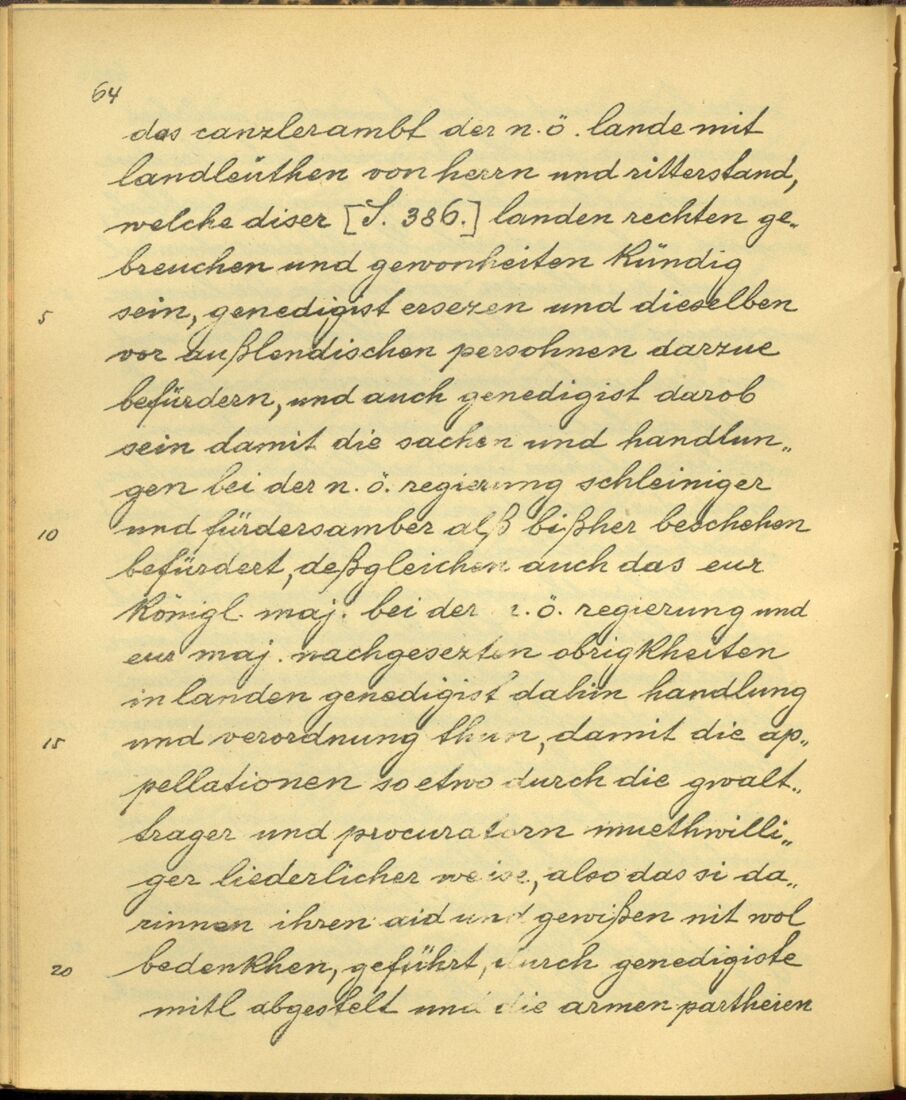 64
das canzlerambt der n. ö. lande mit
landleüthen von herrn und ritterstand,
welche diser [S. 386.] landen rechten ge„
breuchen und gewonheiten kündig
5 sein, genedigist ersezen und dieselben
vor außlendischen persohnen darzue
befürdern, und auch genedigist darob
sein damit die sachen und handlun„
gen bei der n. ö. regierung schleiniger
10 und fürdersamber alß bißher beschehen
befürdert, deßgleichen auch das eur
königl. maj. bei der n. ö. regierung und
eur maj. nachgesezten obrigkheiten
in landen genedigist dahin handlung
15 und verordnung thun, damit die ap„
pellationen so etwo durch die gwalt„
trager und procuratorn muethwilli„
ger liederlicher weise, also das si da„
rinnen ihren aid und gewißen nit wol
20 bedenkhen, geführt, durch genedigiste
mitl abgestelt und die armen partheien